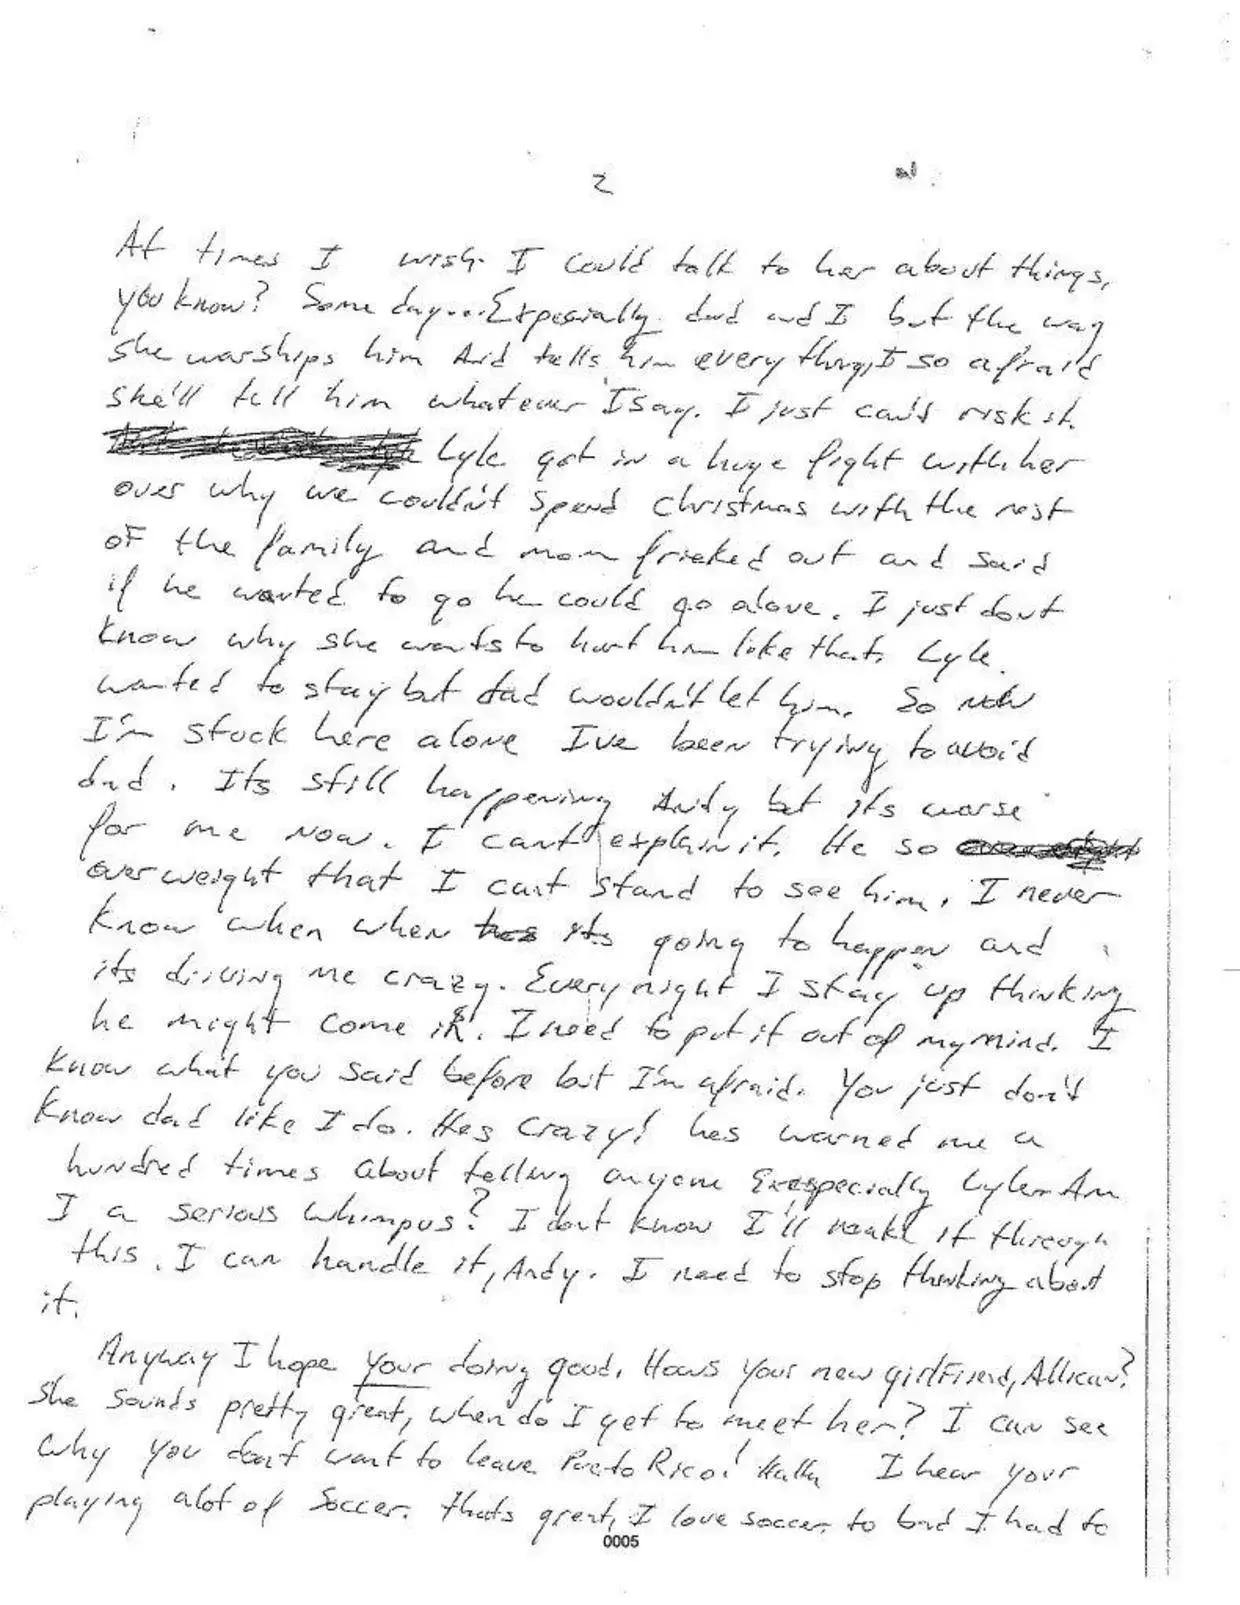 2
At times I wish I could talk to her about things,
you know? Some day... Especially dad and I but the way
she warships him and tells him everything, I so afraid
she'll tell him whatever I say. I just can't risk it.
Lyle got in a huge fight with her
over why we couldn't spend Christmas with the rest
of the family and mom frieked out and said
if he wanted to go he could go alone. I just dont
know why she wants to hurt him like that. Lyle
wanted to stay but dad wouldn't let him. So now
I'm stuck here alone I've been trying to avoid
dad. Its still happening Andy but its worse
for me now. I cant explain it. He so
overweight that I cant stand to see him. I never
know when when its going to happen and
its driving me crazy. Every night I stay up thinking
he might come in. I need to put it out of my mind. I
know what you said before but I'm afraid. You just don't
know dad like I do. Hes crazy! hes warned me a
hundred times about telling anyone Exspecially Lyle. Am
I a serious whimpus? I dont know I'll make it through
this. I can handle it, Andy. I need to stop thinking about
it.
Anyway I hope your doing good. Hows your new girlfriend, Allican?
She sounds pretty great, when do I get to meet her? I can see
why you dont want to leave Puerto Rico! Haha I hear your
playing alot of Soccer. thats great, I love soccer. to bad I had to
0005